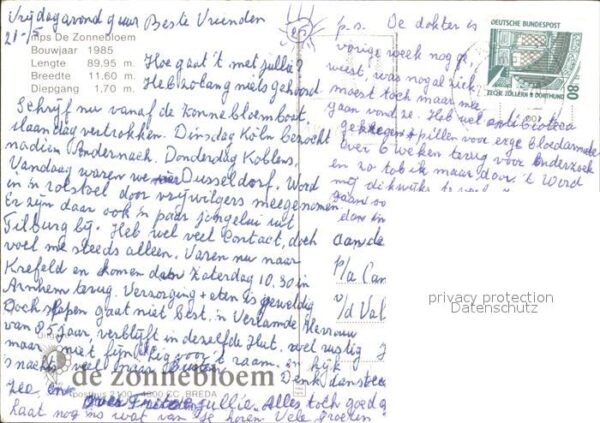 Vrijdagavond 9 uur Beste Vrienden
21-
mps De Zonnebloem
Bouwjaar 1985
Lengte 89.95 m. Hoe gaat 't met jullie?
Breedte 11.60 m. Heb zolang niets gehoord
Diepgang 1.70 m.
Schrijf nu vanaf de Zonnebloemboot.
Maandag vertrokken. Dinsdag Köln bezocht
nadien Andernach. Donderdag Koblens.
Vandaag waren we Dusseldorf. Word
in 'n rolstoel door vrijwilligers meegenomen
Er zijn daar ook 'n paar jongelui uit
Tilburg bij. Heb wel veel Contact, doch
voel me steeds alleen. Varen nu naar
Krefeld en komen dan Zaterdag 10.30 in
Arnhem terug. Verzorging + eten is geweldig
Doch slapen gaat niet best, 'n Mevrouw
van 85 jaar, verblijft in dezelfde Hut. wel rustig
maar niet fijn. Lig voor 't raam. en kijk
s'nachts veel naar Buiten. Denk dan steeds
de zonnebloem
postbus 2100 - 4800 CC BREDA
en over jullie. Alles toch goed
Laat nog 'ns wat van je horen Vele groeten
p.s. De dokter is
vorige week nog
wiest, was nogal ziek
moest toch maar mee
gaan vond ze. Heb wel antibiotica
gekregen + pillen voor erge bloedarmoede
over 6 weken terug voor onderzoek
en zo tob ik maar door. 't Word
mij
gaan
dan
aan de
p/a
v/d Val
DEUTSCHE BUNDESPOST
80
ZECHE ZOLLERN II DORTMUND
privacy protection
Datenschutz